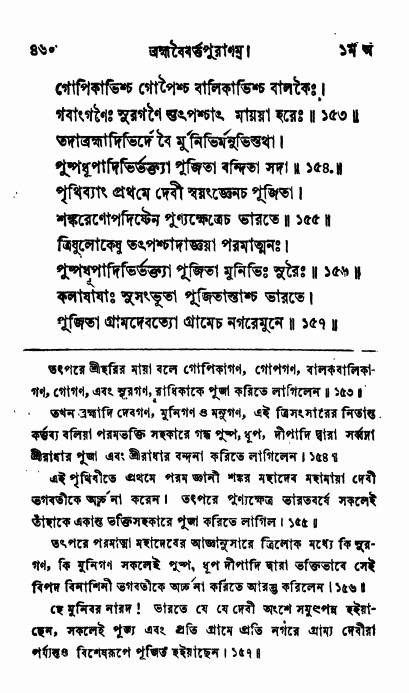 ৪৬০ ব্রহ্মবৈবর্ত্তপুরাণম্। ১ম অ
গোপিকাভিশ্চ গোপৈশ্চ বালিকাভিশ্চ বালকৈঃ।
গবাংগণৈঃ সুরগণৈ স্তৎপশ্চাৎ মায়য়া হরেঃ॥ ১৫৩॥
তদাব্রহ্মাদিভির্দে বৈ র্মুনিভির্মনুভিস্তথা।
পুষ্পধূপাদিভির্ভক্ত্যা পূজিতা বন্দিতা সদা॥ ১৫৪॥
পৃথিব্যাং প্রথমে দেবী স্বয়ংজ্ঞেনচ পূজিতা।
শঙ্করেণোপদিষ্টেন পুণ্যক্ষেত্রেচ ভারতে॥ ১৫৫॥
ত্রিষুলোকেষু তৎপশ্চাদাজ্ঞয়া পরমাত্মনঃ।
পুষ্পধূপাদিভির্ভক্ত্যা পূজিতা মুনিভিঃ সুরৈঃ॥ ১৫৬॥
কলাযাযাঃ সুসংভূতা পূজিতাস্তাশ্চ ভারতে।
পূজিতা গ্রামদেবত্যো গ্রামেচ নগরেমুনে॥ ১৫৭॥
তৎপরে শ্রীহরির মায়া বলে গোপিকাগণ, গোপগণ, বালকবালিকা-
গণ, গোগণ, এবং সুরগণ, রাধিকাকে পূজা করিতে লাগিলেন॥ ১৫৩॥
তখন ব্রহ্মাদি দেবগণ, মুনিগণ ও মনুগণ, এই ত্রিসংসারের নিতান্ত
কর্ত্তব্য বলিয়া পরমভক্তি সহকারে গন্ধ পুষ্প, ধূপ, দীপাদি দ্বারা সর্ব্বদা
শ্রীরাধার পূজা এবং শ্রীরাধার বন্দনা করিতে লাগিলেন। ১৫৪॥
এই পৃথিবীতে প্রথমে পরম জ্ঞানী শঙ্কর মহাদেব মহামায়া দেবী
ভগবতীকে অর্চ্চনা করেন। তৎপরে পুণ্যক্ষেত্র ভারতবর্ষে সকলেই
তাঁহাকে একান্ত ভক্তিসহকারে পূজা করিতে লাগিল। ১৫৫॥
তৎপরে পরমাত্মা মহাদেবের আজ্ঞানুসারে ত্রিলোক মধ্যে কি সুর-
গণ, কি মুনিগণ সকলেই পুষ্প, ধূপ দীপাদি দ্বারা ভক্তিভাবে সেই
বিপদ বিনাশিনী ভগবতীকে অর্চ্চনা করিতে আরম্ভ করিলেন। ১৫৬॥
হে মুনিবর নারদ! ভারতে যে যে দেবী অংশে সমুৎপন্ন হইয়া-
ছেন, সকলেই পূজ্য এবং প্রতি গ্রামে প্রতি নগরে গ্রাম্য দেবীরা
পর্য্যন্তও বিশেষরূপে পূজিত হইয়াছেন। ১৫৭॥